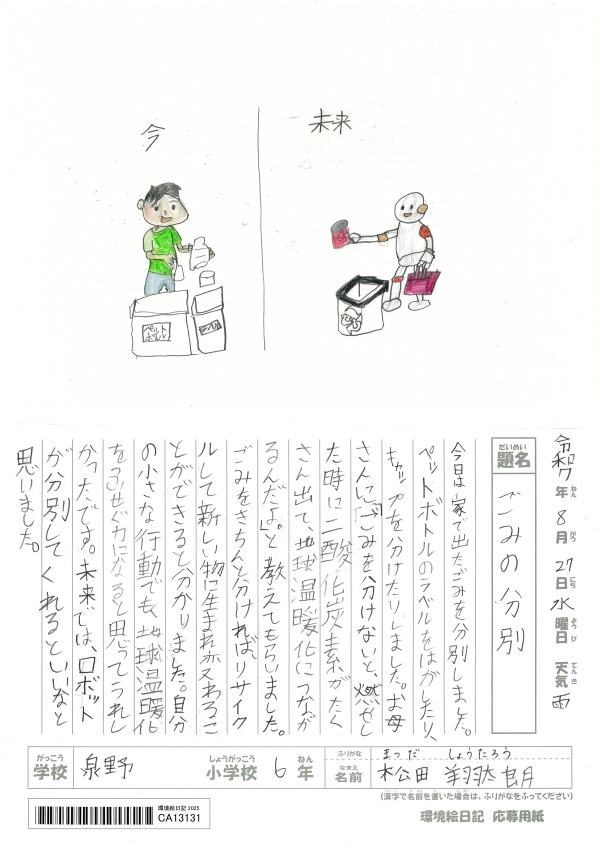 今
未来
ペットボトル
令和7年8月27日水曜日 天気 雨
ねん
がつ
にち
ようび
てんき
だいめい
題名
ごみの分別
今日は家で出たごみを分別しました。
ペットボトルのラベルをはがしたり、
キャップを分けたりしました。お母
さんに、「ごみを分けないと、燃せし
た時に二酸化炭素がたく
さん出て、地球温暖化につなが
るんだよ。」と教えてもらいました。
ごみをきちんと分ければ、リサイク
ルして新しい物に生まれ変わるこ
とができると分かりました。自分
の小さな行動でも、地球温暖化
をふせぐ力になると思ってうれし
かったです。未来では、ロボット
が分別してくれるといいなと
思いました。
がっこう
学校
泉野
しょうがっこう
小学校
6
ねん
年
ふりがな
まつだ しょうたろう
なまえ
名前
松田 翔太朗
(漢字で名前を書いた場合は、ふりがなをふってください)
環境絵日記 2025
CA13131
環境絵日記 応募用紙